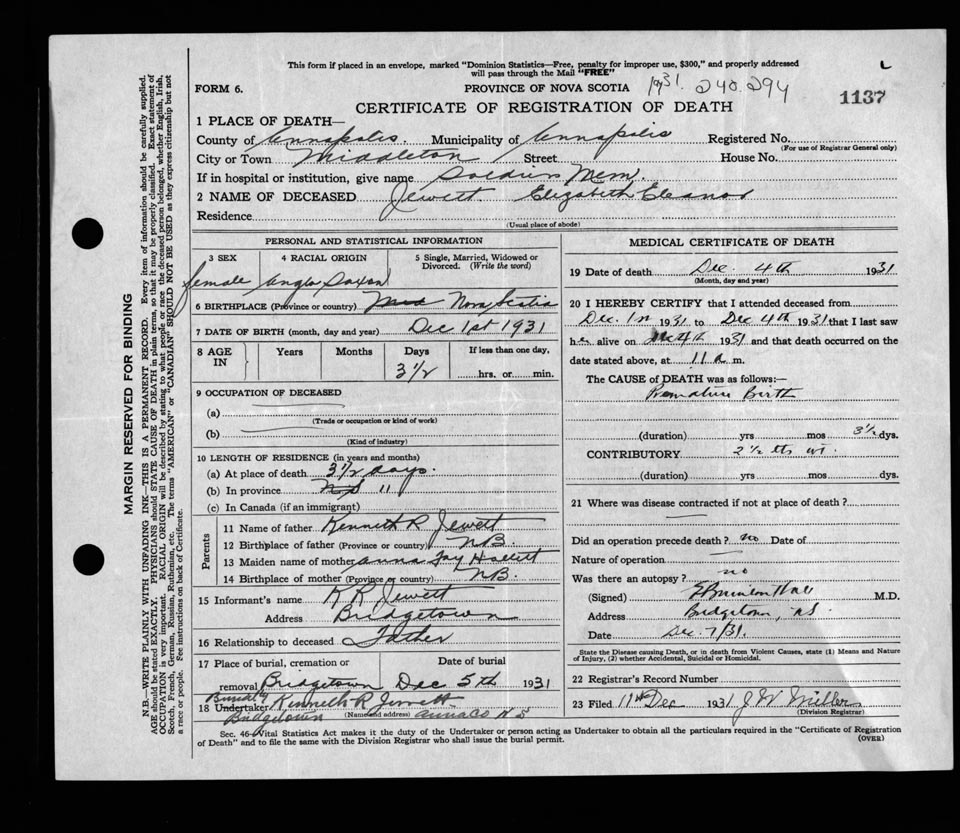 This form if placed in an envelope, marked "Dominion Statistics—Free, penalty for improper use, $300," and properly addressed
will pass through the Mail "FREE"
FORM 6.
PROVINCE OF NOVA SCOTIA 1931. 240.294
1137
CERTIFICATE OF REGISTRATION OF DEATH
1 PLACE OF DEATH—
County of Annapolis. Municipality of Annapolis Registered No.
(For use of Registrar General only)
City or Town Middleton Street House No.
If in hospital or institution, give name Soldiers Mem.
2 NAME OF DECEASED Jewett Elizabeth Eleanor
Residence
(Usual place of abode)
PERSONAL AND STATISTICAL INFORMATION
3 SEX
female
4 RACIAL ORIGIN
Anglo Saxon
5 Single, Married, Widowed or
Divorced. (Write the word)
6 BIRTHPLACE (Province or country) Nova Scotia
7 DATE OF BIRTH (month, day and year) Dec 1st 1931
8 AGE
IN
Years
Months
Days
3 1/2
If less than one day,
hrs. or min.
9 OCCUPATION OF DECEASED
(a)
(Trade or occupation or kind of work)
(b)
(Kind of industry)
10 LENGTH OF RESIDENCE (in years and months)
(a) At place of death 3 1/2 days.
(b) In province NS "
(c) In Canada (if an immigrant)
Parents
11 Name of father Kenneth R Jewett
12 Birthplace of father (Province or country) NB.
13 Maiden name of mother Anna Fay
14 Birthplace of mother (Province or country) NB.
15 Informant's name K R Jewett
Address Bridgetown
16 Relationship to deceased Father
17 Place of burial, cremation or
removal Bridgetown
Date of burial
Dec 5th 1931
Burial by
18 Undertaker Kenneth R Jewett
Bridgetown (Name and address) Anna Co N S
MEDICAL CERTIFICATE OF DEATH
19 Date of death Dec. 4th 1931
(Month, day and year)
20 I HEREBY CERTIFY that I attended deceased from
Dec. 1st 1931 to Dec 4th 1931 that I last saw
her alive on Dec 4th 1931 and that death occurred on the
date stated above, at 11 a m.
The CAUSE of DEATH was as follows:—
Premature Birth
(duration) yrs mos 3 1/2 dys.
CONTRIBUTORY 2 1/2 lbs wt.
(duration) yrs mos dys.
21 Where was disease contracted if not at place of death?
Did an operation precede death? no Date of
Nature of operation
Was there an autopsy? no
(Signed) M.D.
Address Bridgetown, N.S.
Date Dec. 7/31.
State the Disease causing Death, or in death from Violent Causes, state (1) Means and Nature
of Injury, (2) whether Accidental, Suicidal or Homicidal.
22 Registrar's Record Number
23 Filed 11th Dec 1931 J W Miller
(Division Registrar)
Sec. 46—Vital Statistics Act makes it the duty of the Undertaker or person acting as Undertaker to obtain all the particulars required in the "Certificate of Registration
of Death" and to file the same with the Division Registrar who shall issue the burial permit.
(OVER)
MARGIN RESERVED FOR BINDING
N.B.—WRITE PLAINLY WITH UNFADING INK—THIS IS A PERMANENT RECORD. Every item of information should be carefully supplied.
AGE should be stated EXACTLY. PHYSICIANS should STATE CAUSE OF DEATH in plain terms, so that it may be properly classified. Exact statement of
OCCUPATION is very important. RACIAL ORIGIN will be described by stating to what people or race the deceased person belonged, whether English, Irish,
Scotch, French, German, Russian, Ruthenian, etc. The terms "AMERICAN" or "CANADIAN" SHOULD NOT BE USED as they express citizenship but not
a race or people. See instructions on back of Certificate.